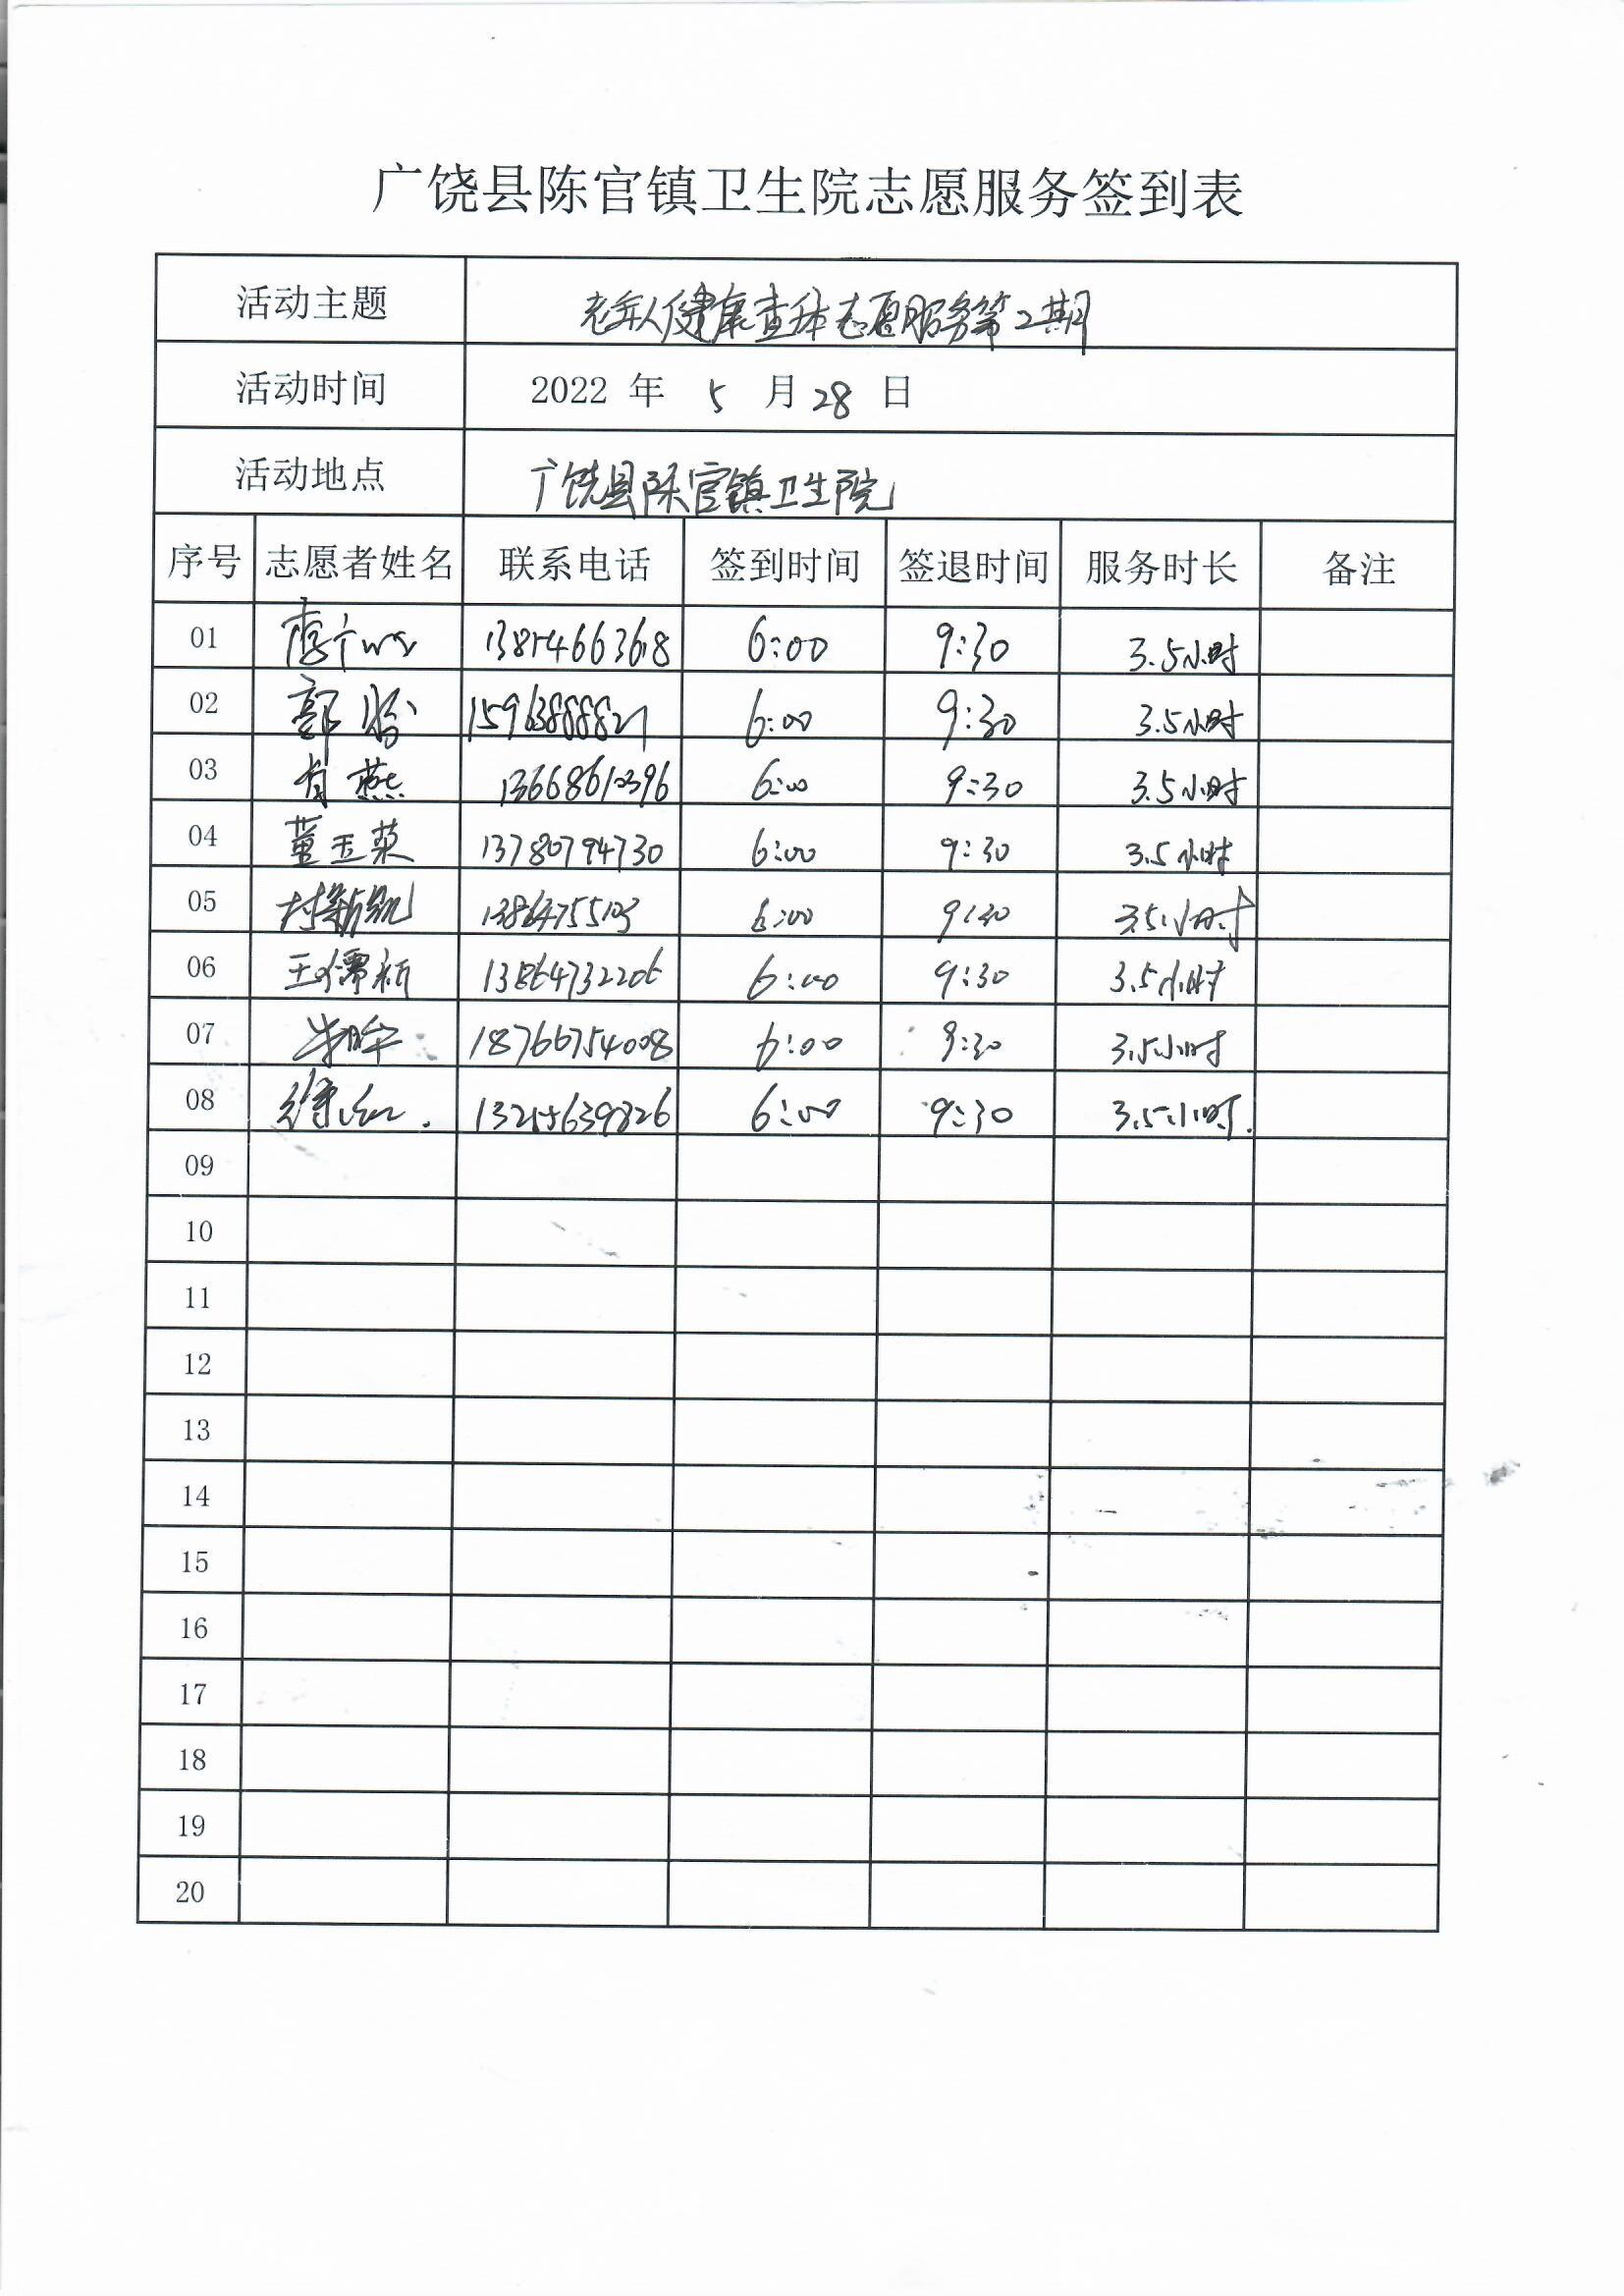 广饶县陈官镇卫生院志愿服务签到表
活动主题 老年人健康查体志愿服务第2期
活动时间 2022 年 5 月 28 日
活动地点 广饶县陈官镇卫生院
序号 志愿者姓名 联系电话 签到时间 签退时间 服务时长 备注
01 6:00 9:30 3.5小时
02 郭 15963888821 6:00 9:30 3.5小时
03 燕 13668610396 6:00 9:30 3.5小时
04 董玉英 13780794730 6:00 9:30 3.5小时
05 6:00 9:30 3.5小时
06 王儒祈 13864732206 6:00 9:30 3.5小时
07 18766754008 6:00 9:30 3.5小时
08 徐 6:00 9:30 3.5小时.
09
10
11
12
13
14
15
16
17
18
19
20